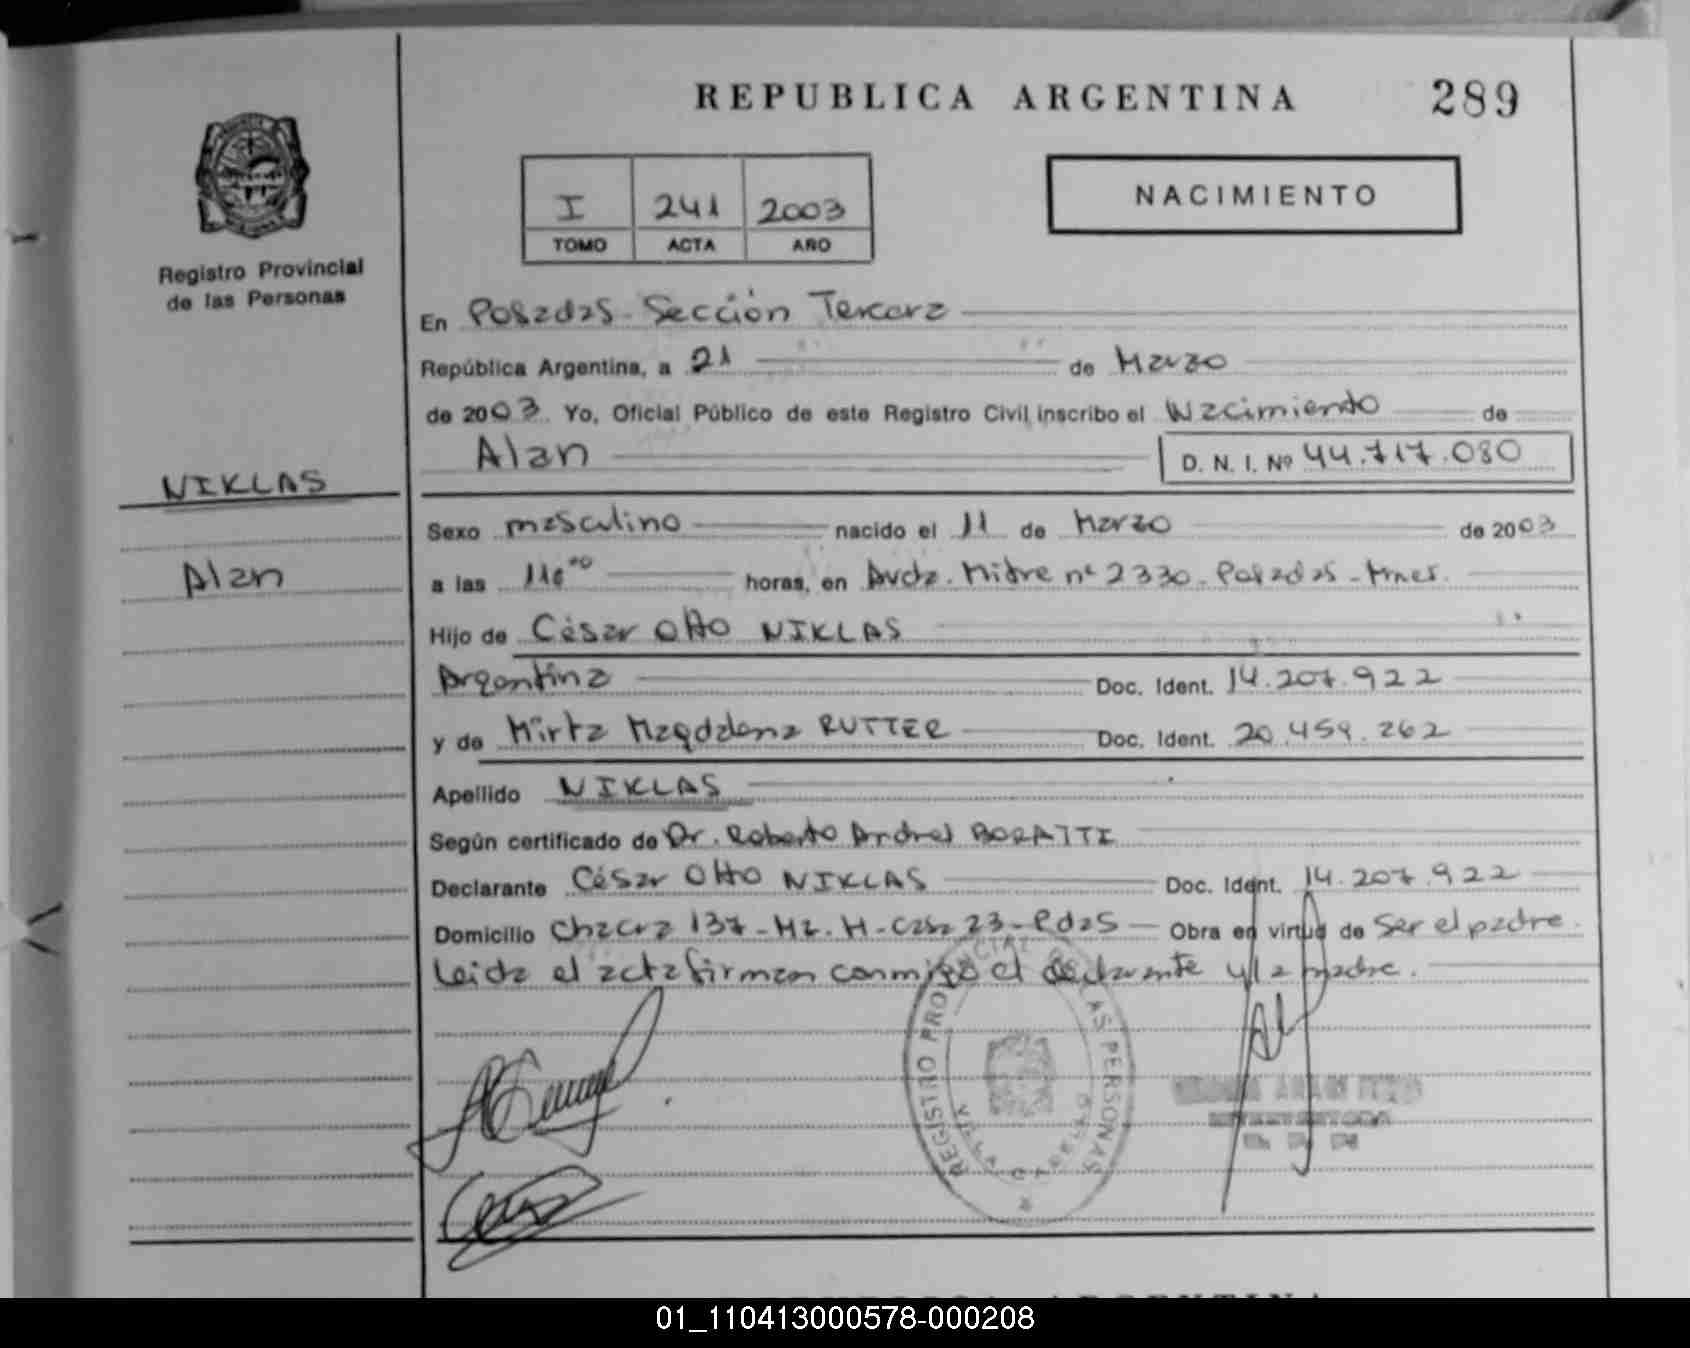 REPUBLICA ARGENTINA 289
I 241 2003
TOMO ACTA AÑO
NACIMIENTO
Registro Provincial
de las Personas
NIKLAS
Alan
En Posadas - Sección Tercera
República Argentina, a 21 de Marzo
de 2003 Yo, Oficial Público de este Registro Civil inscribo el Nacimiento de
Alan D. N. I. Nº 44.717.080
Sexo masculino nacido el 11 de Marzo de 2003
a las horas, en Avda. Mitre nº 2330 - Posadas - Mnes.
Hijo de César Otto NIKLAS
Argentina Doc. Ident. 14.207.922
y de Mirta Magdalena RUTTER Doc. Ident. 20.459.262
Apellido NIKLAS
Según certificado de Dr. Roberto Andres BORATTI
Declarante César Otto NIKLAS Doc. Ident. 14.207.922
Domicilio Chacra 137 - Mz. H - Casa 23 - Pdas Obra en virtud de Ser el padre.
Leida el acta firman conmigo el declarante y la madre.
REGISTRO PROVINCIAL DE LAS PERSONAS
01_110413000578-000208